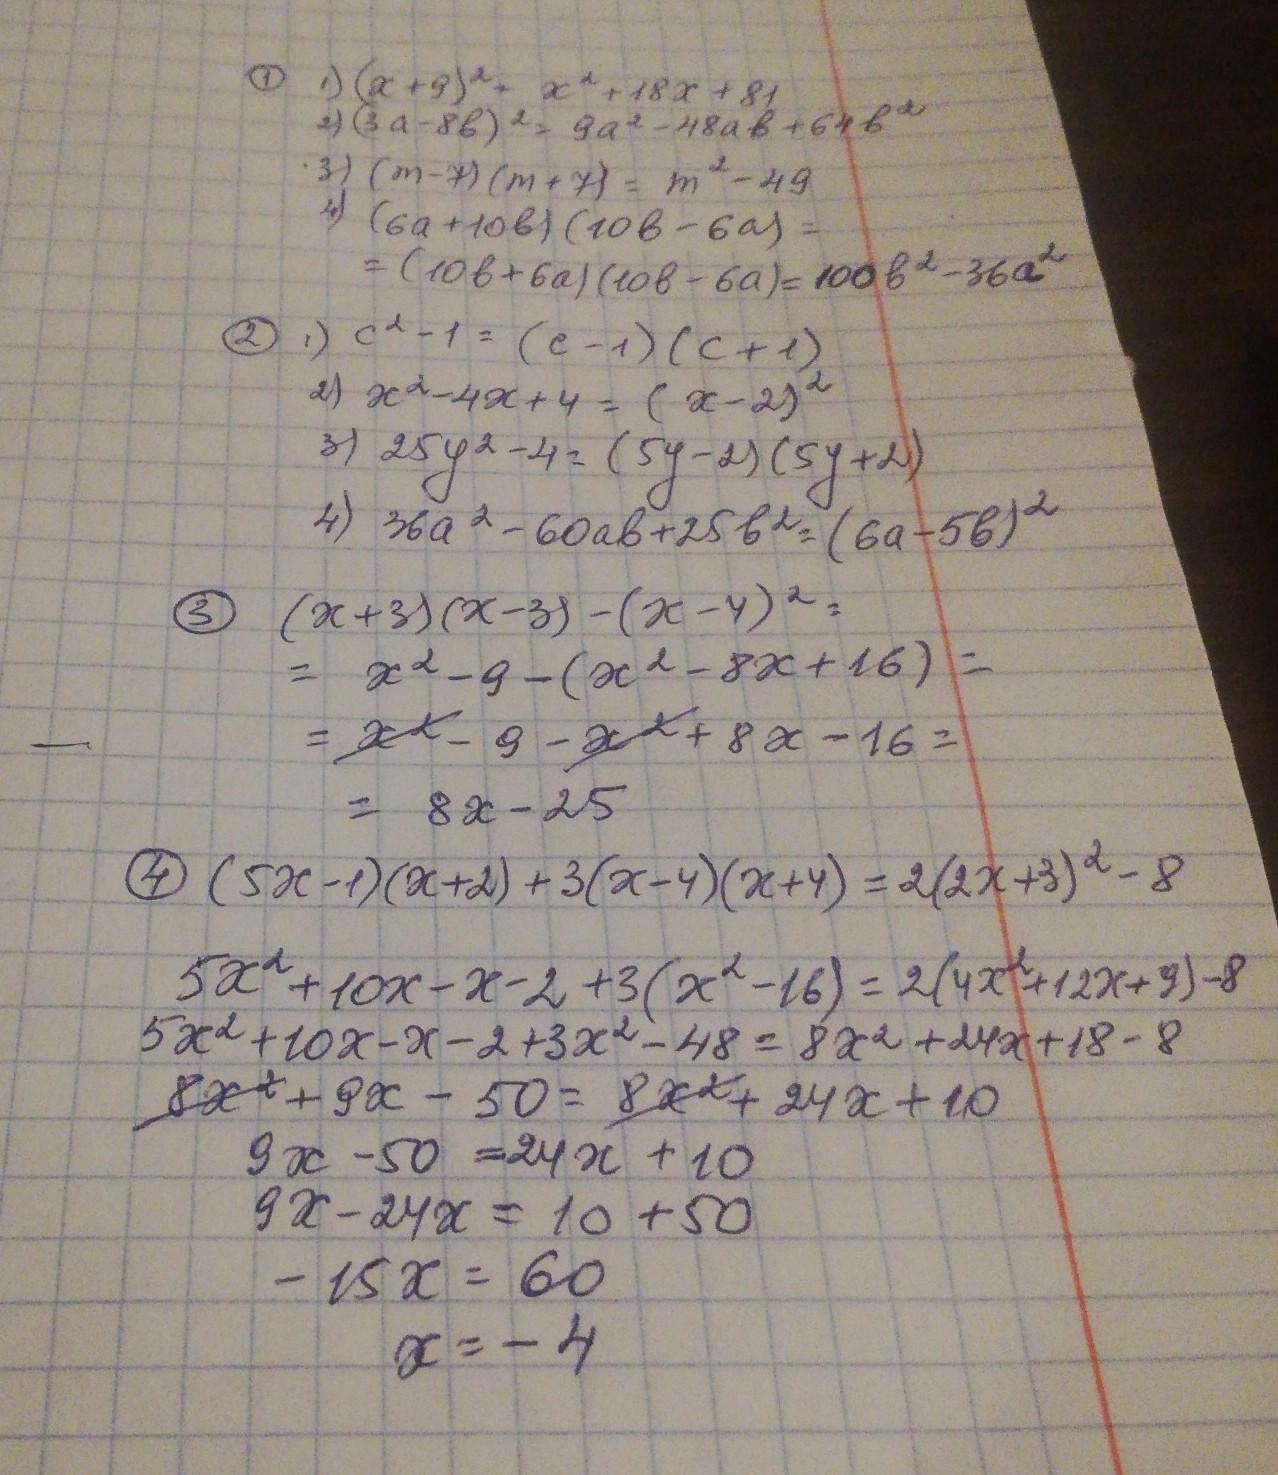 ① 1) (x+9)² = x²+18x+81
2) (3a-8b)² = 9a²-48ab+64b²
3) (m-7)(m+7) = m²-49
4) (6a+10b)(10b-6a) =
= (10b+6a)(10b-6a) = 100b²-36a²
② 1) c²-1 = (c-1)(c+1)
2) x²-4x+4 = (x-2)²
3) 25y²-4 = (5y-2)(5y+2)
4) 36a²-60ab+25b² = (6a-5b)²
③ (x+3)(x-3)-(x-4)² =
= x²-9-(x²-8x+16) =
= x²-9-x²+8x-16 =
= 8x-25
④ (5x-1)(x+2)+3(x-4)(x+4) = 2(2x+3)²-8
5x²+10x-x-2+3(x²-16) = 2(4x²+12x+9)-8
5x²+10x-x-2+3x²-48 = 8x²+24x+18-8
8x²+9x-50 = 8x²+24x+10
9x-50 = 24x+10
9x-24x = 10+50
-15x = 60
x = -4